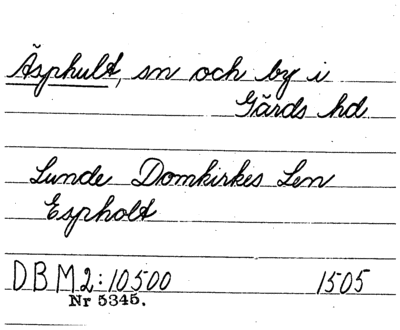 Äsphult, sn och by i
Gärds hd
Lunde Domkirkes Len
Espholt
DBM2:10500 1505
Nr 5345.